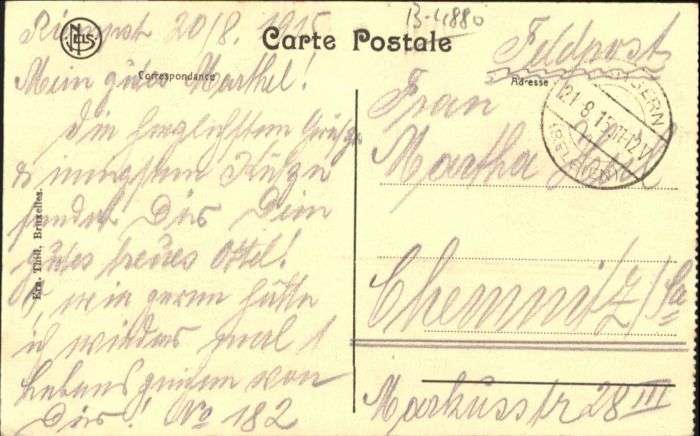 B-4880
20/8. 1915
Carte Postale
Feldpost
Correspondance
Adresse
Mein gutes Marthel!
Die herzlichsten Grüße
& innigsten Küsse
sendet Dir Dein
gutes treues Ottel!
O, wie gerne hätte
ich wieder mal 1
Lebenszeichen von
Dir! No 182
Frau
Martha
Chemnitz/Sa
Markusstr 28 III
Ern. Thill, Bruxelles.
NELS
ISEGHEM
21 8 15 11-12 V
(BELGIEN)